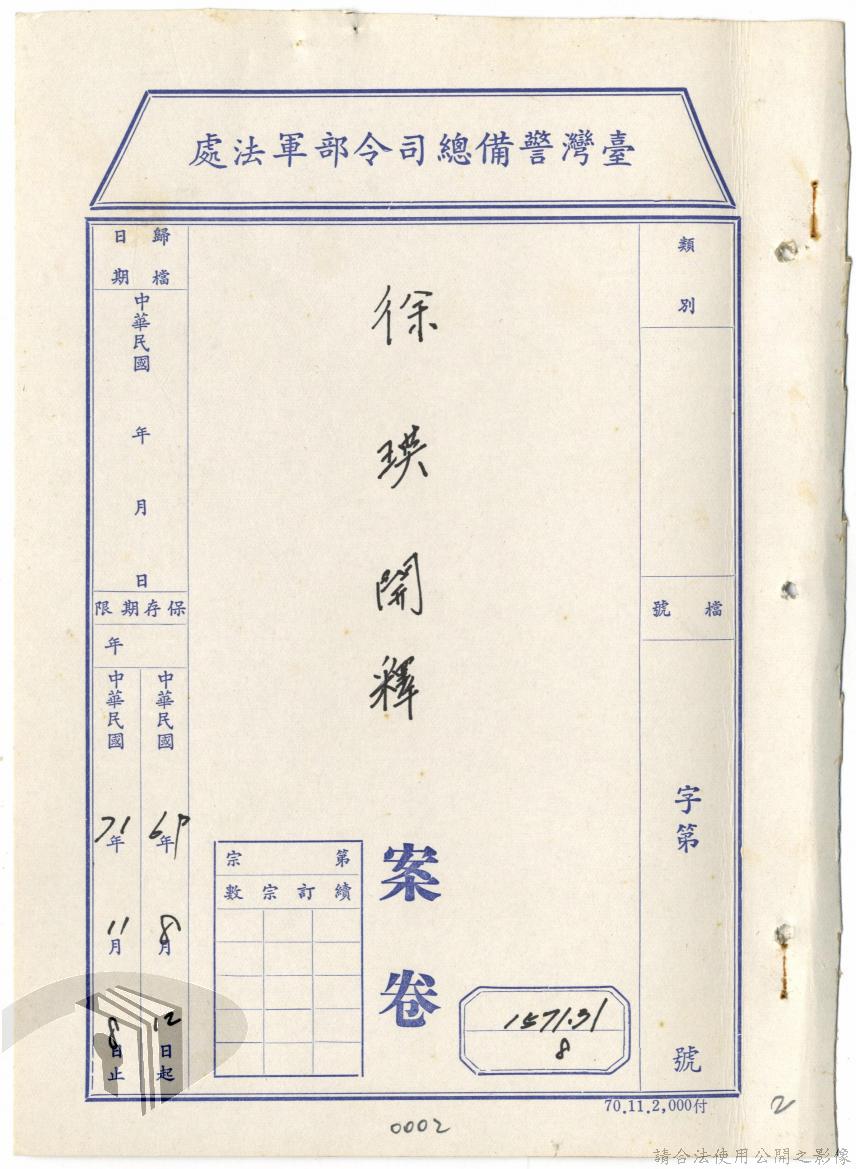 臺灣警備總司令部軍法處
類別
檔號
字第 號
徐瑛開釋
案卷
第 宗
續訂宗數
1571.31
8
歸檔日期
中華民國 年 月 日
保存期限
年
中華民國 69年 8月 12日起
中華民國 71年 11月 8日止
70.11.2,000付
0002
2
請合法使用公開之影像